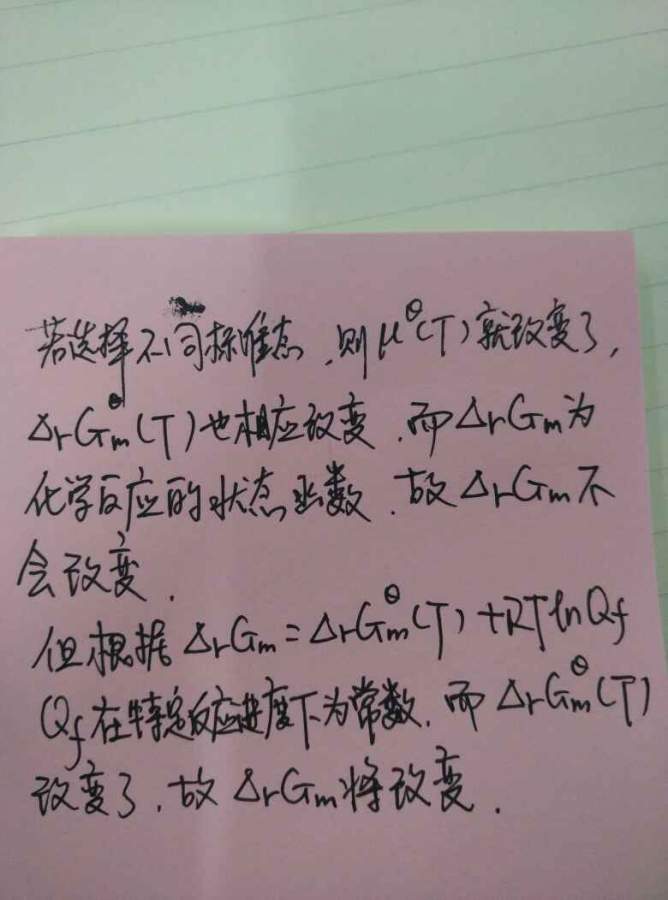 若选择不同标准态，则μ^θ(T)就改变了，
ΔrGm^θ(T)也相应改变．而ΔrGm为
化学反应的状态函数．故ΔrGm不
会改变．
但根据ΔrGm=ΔrGm^θ(T)+RTlnQf
Qf在特定反应进度下为常数．而ΔrGm^θ(T)
改变了．故ΔrGm将改变．